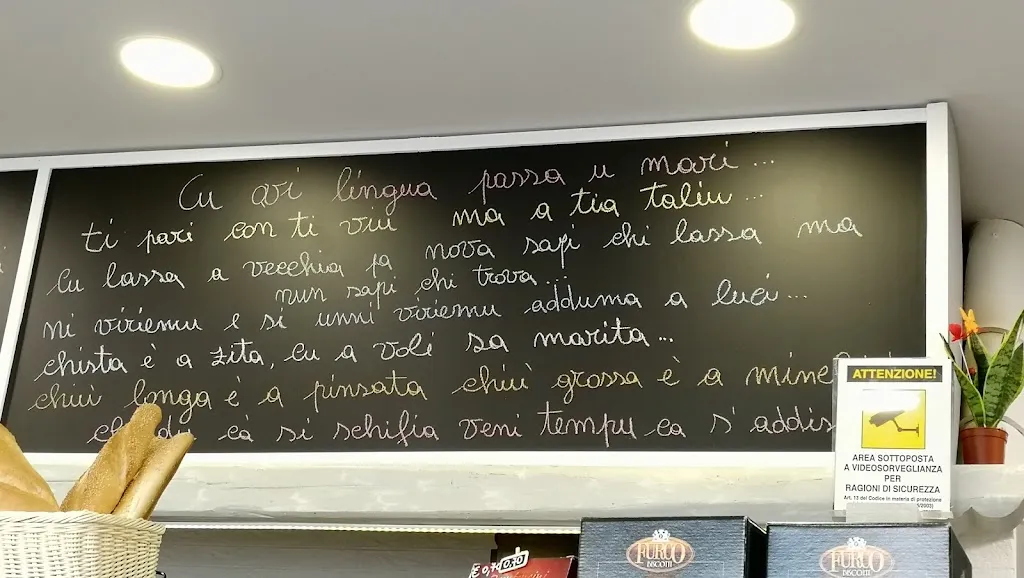 Cu avi lingua passa u mari...
ti pari con ti viu ma a tia taliu...
Cu lassa a vecchia pa nova sapi chi lassa ma
nun sapi chi trova...
ni viriemu e si unni viriemu adduma a luci...
chista è a zita, cu a voli sa marita...
chiù longa è a pinsata chiù grossa è a mine
ca si schifia veni tempu ca s'addis
ATTENZIONE!
AREA SOTTOPOSTA
A VIDEOSORVEGLIANZA
PER
RAGIONI DI SICUREZZA
Art. 13 del Codice in materia di protezione
€ 0,70
FURCO
BISCOTTI
FURCO
BISCOTTI